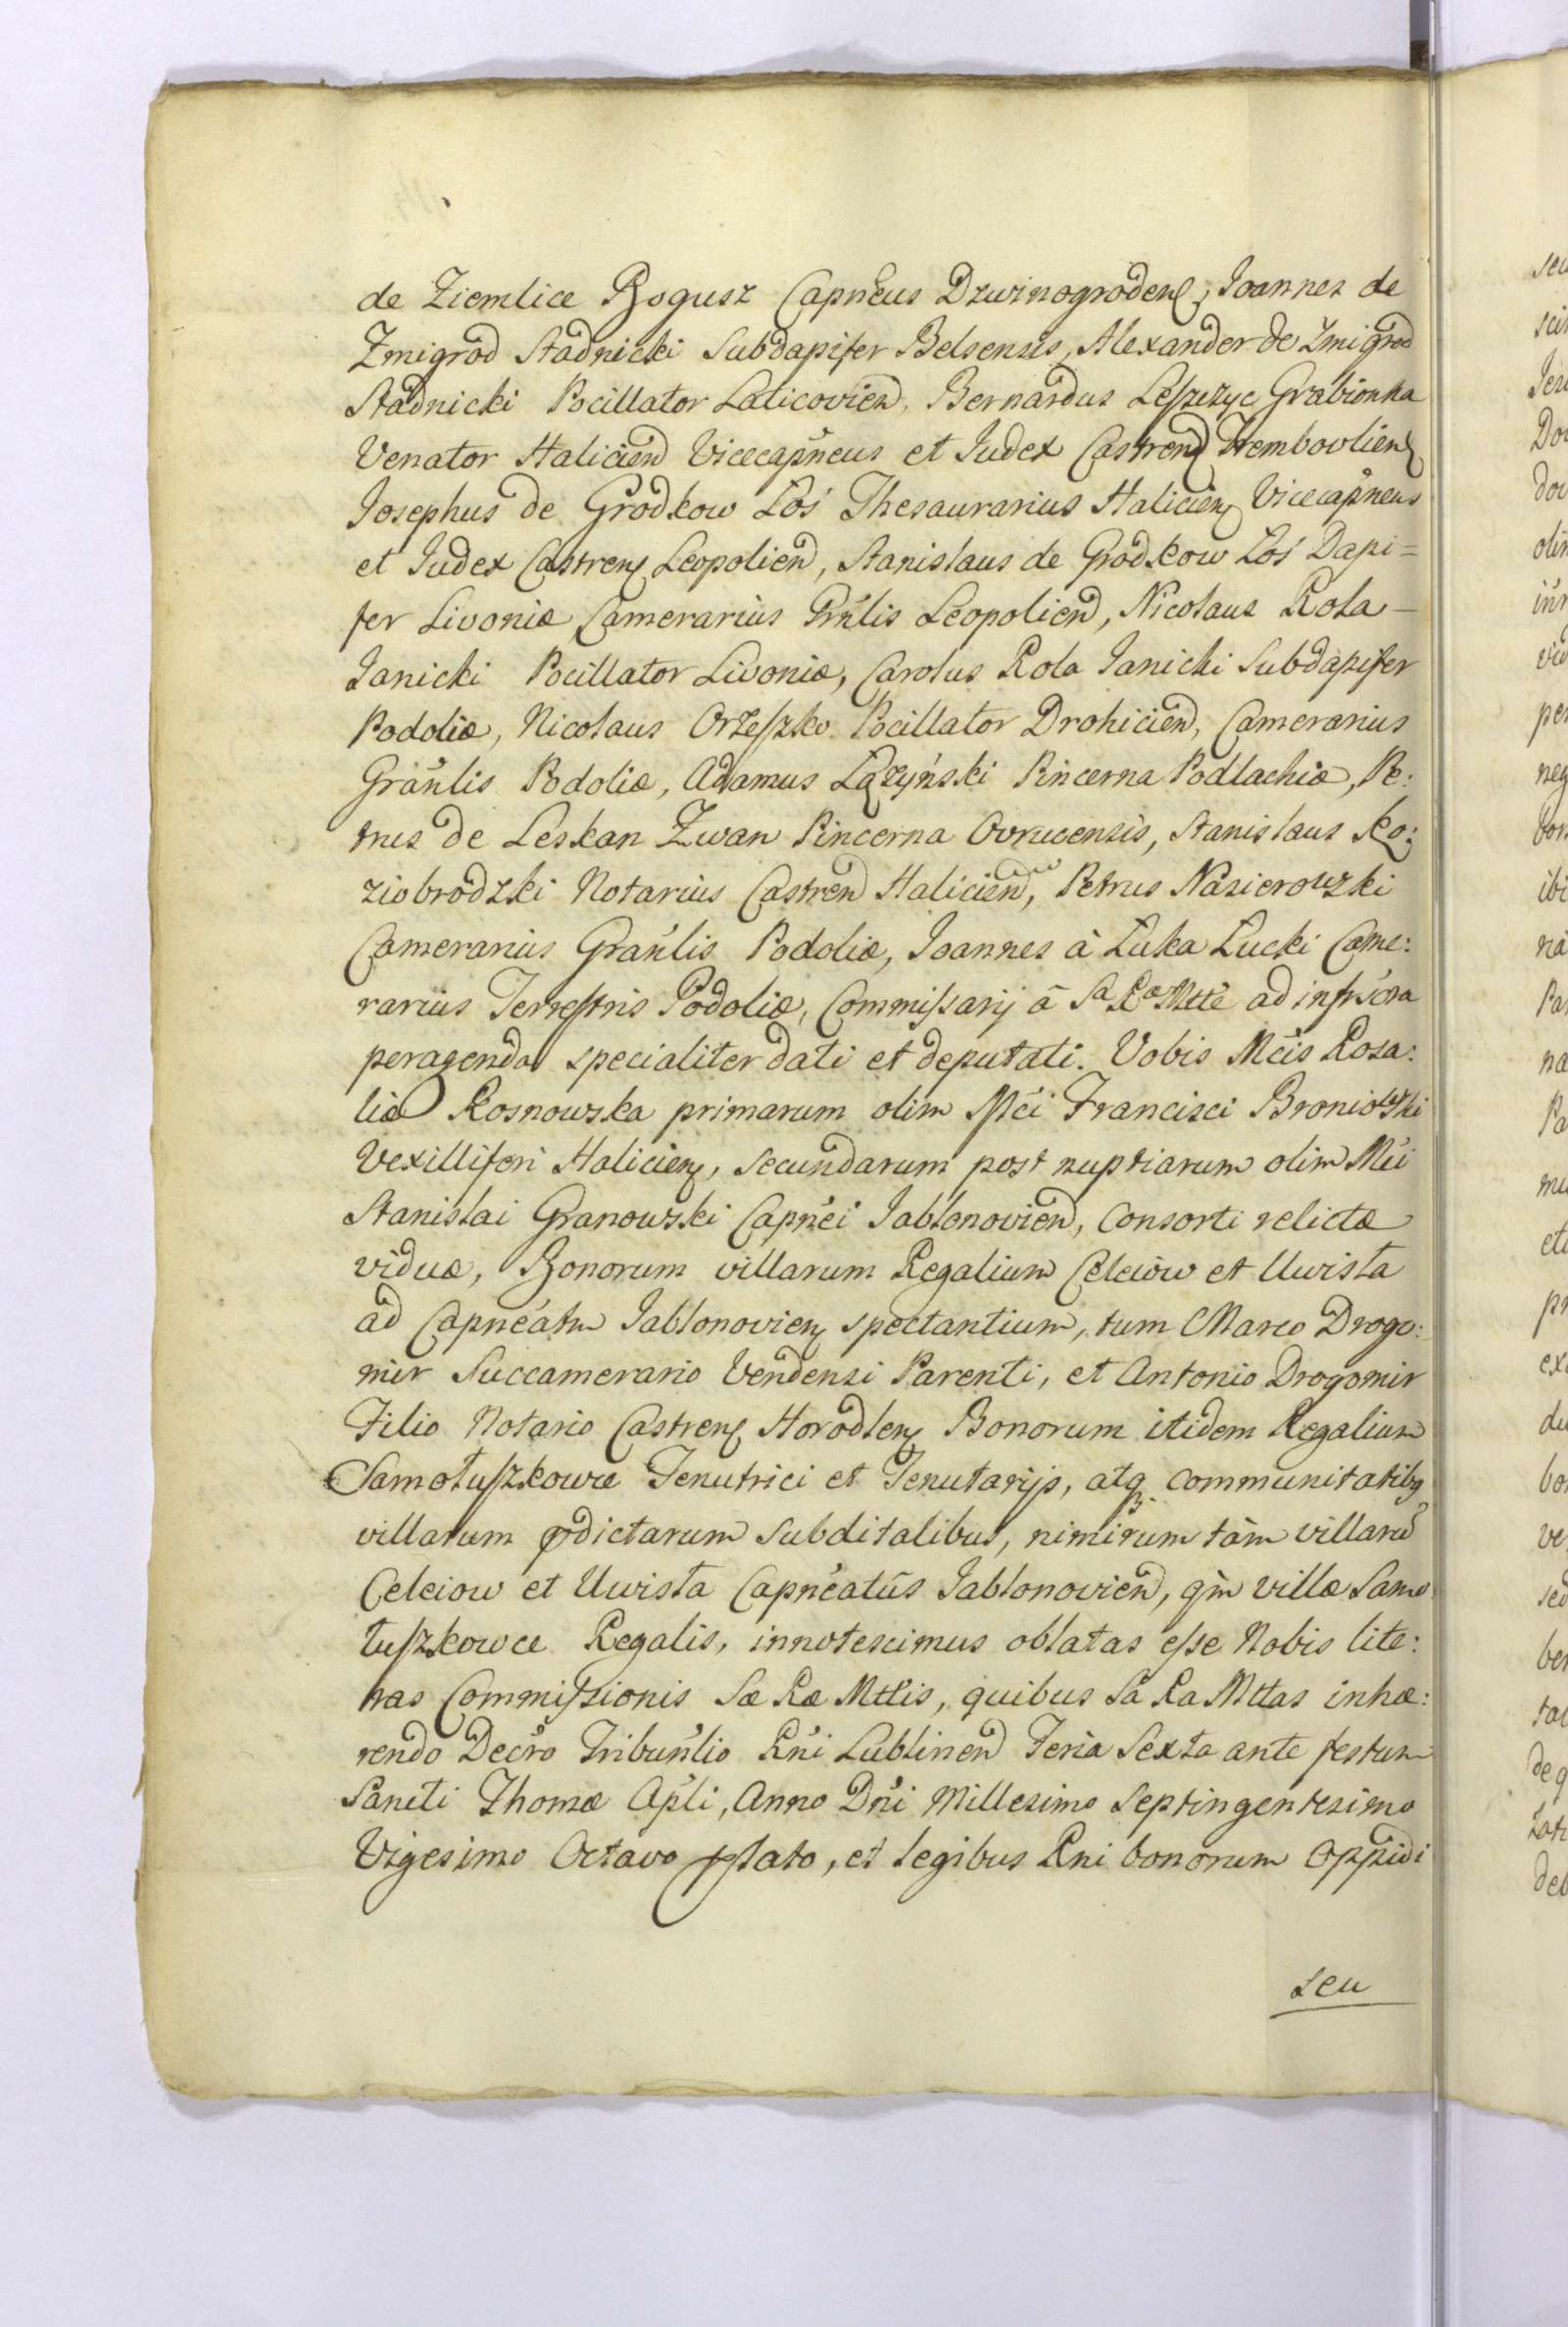 de Ziemlice Bogusz Capneus Dzwinogroden, Joannes de
Zmigrod Stadnicki Subdapifer Belsensis, Alexander de Zmigrod
Stadnicki Pocillator Laticovien, Bernardus Leszczyc Grabionka
Venator Halicien Vicecapneus et Judex Castren Trembovlien
Josephus de Grodkow Łoś Thesaurarius Halicien Vicecapneus
et Judex Castren Leopolien, Stanislaus de Grodkow Łoś Dapi=
fer Livoniæ Camerarius Grnlis Leopolien, Nicolaus Rola
Janicki Pocillator Livoniæ, Carolus Rola Janicki Subdapifer
Podoliæ, Nicolaus Orzeszko Pocillator Drohicien, Camerarius
Granlis Podoliæ, Adamus Łążyński Pincerna Podlachiæ, Pe:
trus de Leskan Zwan Pincerna Ovrucensis, Stanislaus Ko:
ziobrodzki Notarius Castren Halicien, Petrus Nasierowski
Camerarius Granlis Podoliæ, Joannes à Łuka Łucki Came:
rarius Terrestris Podoliæ, Commissarij â Sa Ra Mtte ad infrscra
peragenda specialiter dati et deputati. Vobis Mcis Rosa:
liæ Kosnowska primarum olim Mci Francisci Broniowski
Vexilliferi Halicien, secundarum post nuptiarum olim Mci
Stanislai Granowski Capnei Jablonovien, consorti relictæ
viduæ, Bonorum villarum Regalium Celeiow et Uwista
ad Capneatum Jablonovien spectantium, tum Marco Drogo:
mir Succamerario Vendensi Parenti, et Antonio Drogomir
Filio Notario Castren Horodlen Bonorum itidem Regalium
Samołuszkowce Tenutrici et Tenutarijs, atq communitatibq
villarum prdictarum subditalibus, nimirum tàm villarū
Celeiow et Uwista Capneatûs Jablonovien, qm villæ Samo
łuszkowce Regalis, innotescimus oblatas esse Nobis lite:
ras Commissionis Sæ Ræ Mttis, quibus Sa Ra Mttas inhæ:
rendo Decro Tribunlio Rni Lublinen Feria Sexta ante festum
Sancti Thomæ Apli, Anno Dni Millesimo Septingentesimo
Vigesimo Octavo plato, et legibus Rni bonorum Oppidi
seu